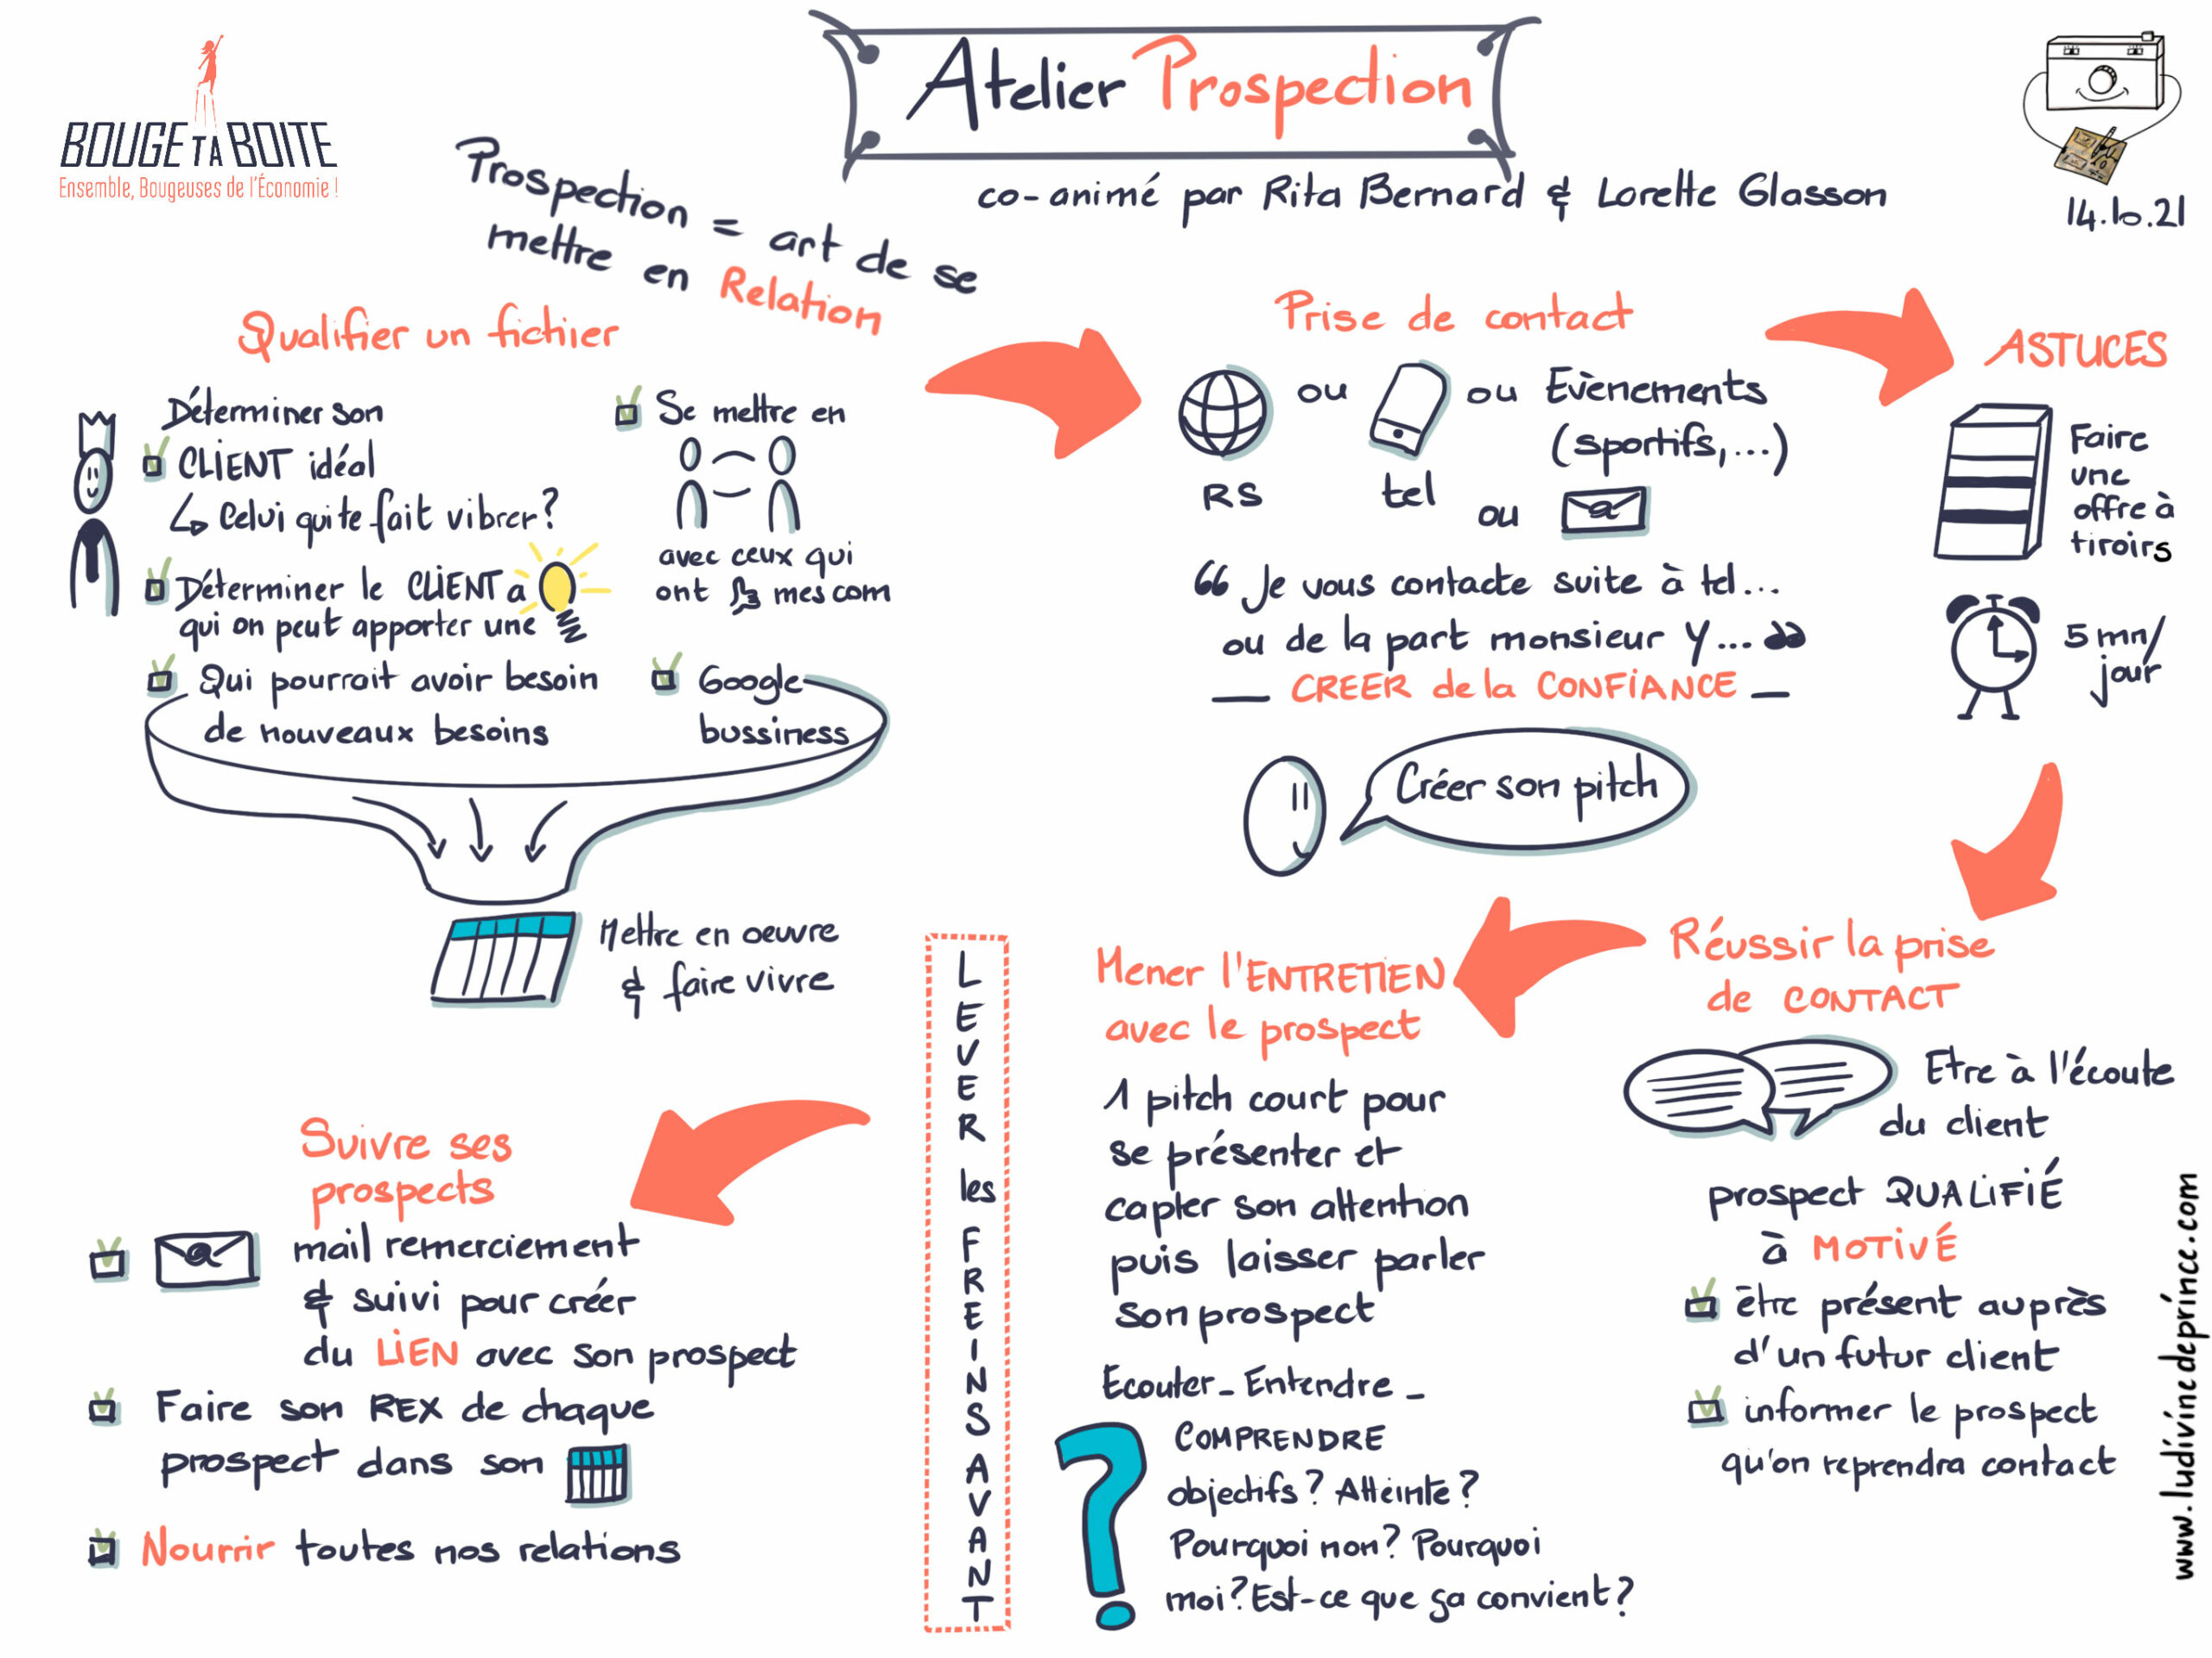 BOUGE TA BOITE
Ensemble, Bougeuses de l'Économie !
Atelier Prospection
co-animé par Rita Bernard & Lorette Glasson
14.10.21
Prospection = art de se
mettre en Relation
Qualifier un fichier
Déterminer son
CLIENT idéal
Celui qui te fait vibrer?
Déterminer le CLIENT a
qui on peut apporter une
Qui pourrait avoir besoin
de nouveaux besoins
Se mettre en
avec ceux qui
ont mes com
Google
bussiness
Mettre en oeuvre
& faire vivre
Prise de contact
ou
ou Evènements
(sportifs,...)
RS
tel
ou
@
"Je vous contacte suite à tel...
ou de la part monsieur Y..."
CREER de la CONFIANCE
Créer son pitch
ASTUCES
Faire
une
offre à
tiroirs
5 mn/
jour
Réussir la prise
de CONTACT
Etre à l'écoute
du client
prospect QUALIFIÉ
à MOTIVÉ
être présent auprès
d'un futur client
informer le prospect
qu'on reprendra contact
Mener l'ENTRETIEN
avec le prospect
1 pitch court pour
se présenter et
capter son attention
puis laisser parler
son prospect
Ecouter_Entendre_
COMPRENDRE
objectifs? Atteinte?
Pourquoi non? Pourquoi
moi? Est-ce que ça convient?
?
LEVER les FREINS AVANT
Suivre ses
prospects
@
mail remerciement
& suivi pour créer
du LIEN avec son prospect
Faire son REX de chaque
prospect dans son
Nourrir toutes nos relations
www.ludivinedeprince.com